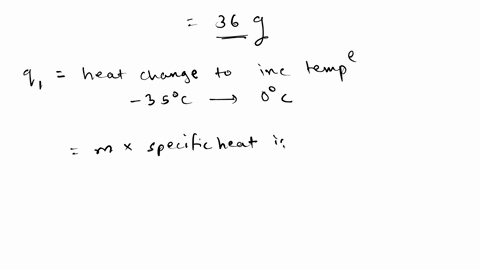 = 36 g
q₁ = heat change to inc temp^e
-35°C → 0°C
= m × specific heat i